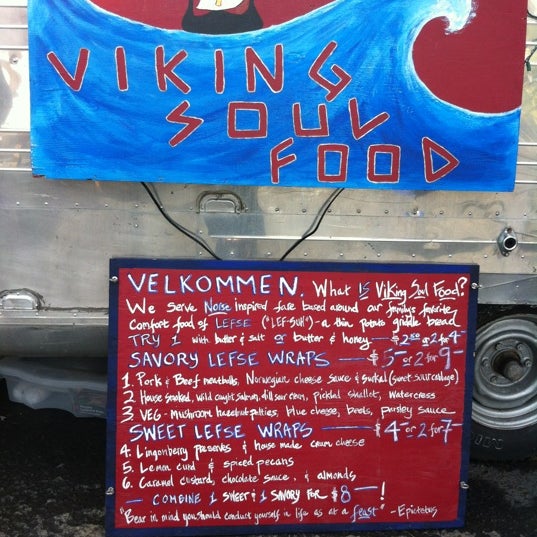 VIKING
SOUL
FOOD
VELKOMMEN. What IS Viking Soul Food?
We serve Norse inspired fare based around our family's favorite
comfort food of LEFSE ("LEF-SUH") - a thin potato griddle bread
TRY 1 with butter & salt or butter & honey — $2.50 or 2 for 4-
SAVORY LEFSE WRAPS — $5- or 2 for 9-
1. Pork & Beef meatballs, Norwegian cheese sauce & surkal (sweet sour cabbage)
2 House smoked, wild caught salmon, dill sour crem, pickled shallot, watercress
3 VEG - Mushroom hazelnut patties, blue cheese, beets, parsley sauce
SWEET LEFSE WRAPS — $4- or 2 for 7-
4. Lingonberry preserves & house made cream cheese
5. Lemon curd & spiced pecans
6. Caramel custard, chocolate sauce, & almonds
— COMBINE 1 SWEET & 1 SAVORY FOR $8 — !
"Bear in mind you should conduct yourself in life as at a feast" - Epictetus